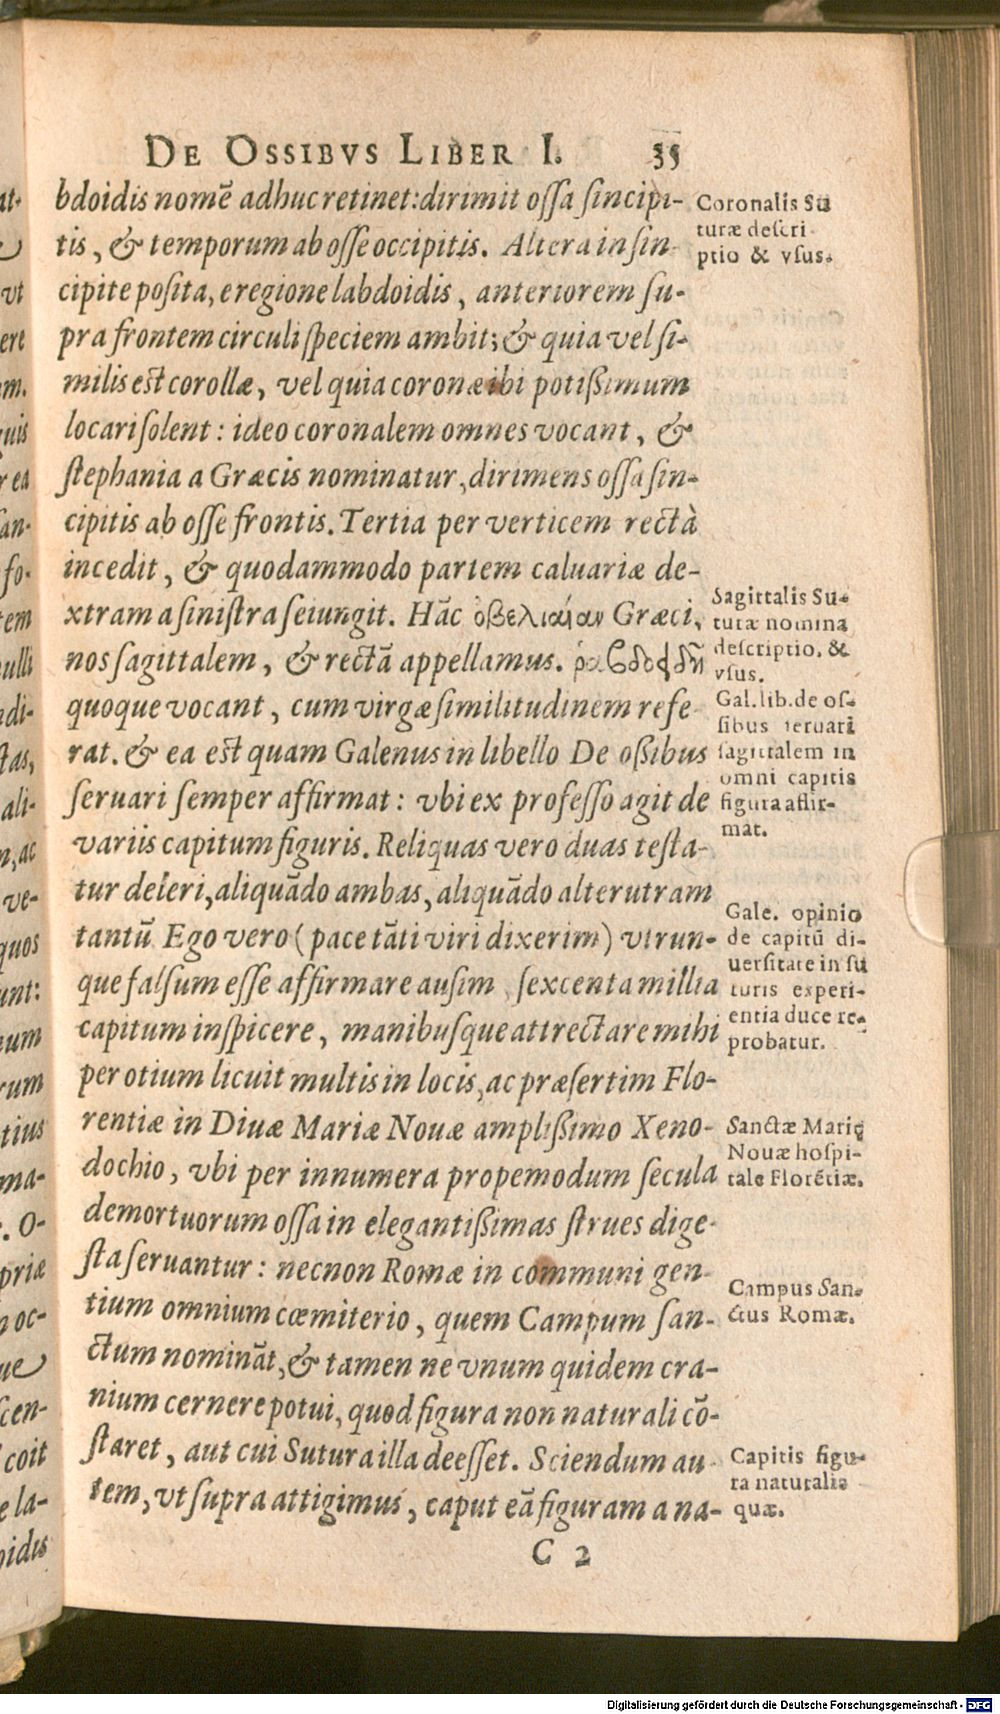 DE OSSIBVS LIBER I. 35
bdoidis nomẽ adhuc retinet: dirimit ossa sincipi-
tis, & temporum ab osse occipitis. Altera in sin-
cipite posita, e regione labdoidis, anteriorem su-
pra frontem circuli speciem ambit; & quia vel si-
milis est corollæ, vel quia coronæ ibi potißimum
locari solent: ideo coronalem omnes vocant, &
stephania a Græcis nominatur, dirimens ossa sin-
cipitis ab osse frontis. Tertia per verticem rectà
incedit, & quodammodo partem caluariæ de-
xtram a sinistra seiungit. Hãc ὀβελιαίαν Græci,
nos sagittalem, & rectã appellamus. ῥαβδοειδῆ
quoque vocant, cum virgæ similitudinem refe-
rat. & ea est quam Galenus in libello De oßibus
seruari semper affirmat: vbi ex professo agit de
variis capitum figuris. Reliquas vero duas testa-
tur deleri, aliquãdo ambas, aliquãdo alterutram
tantũ. Ego vero (pace tãti viri dixerim) vtrun-
que falsum esse affirmare ausim, sexcenta millia
capitum inspicere, manibusque attrectare mihi
per otium licuit multis in locis, ac præsertim Flo-
rentiæ in Diuæ Mariæ Nouæ amplißimo Xeno-
dochio, vbi per innumera propemodum secula
demortuorum ossa in elegantißimas strues dige-
sta seruantur: necnon Romæ in communi gen-
tium omnium cœmiterio, quem Campum san-
ctum nominãt, & tamen ne vnum quidem cra-
nium cernere potui, quod figura non naturali cõ-
staret, aut cui Sutura illa deesset. Sciendum au-
tem, vt supra attigimus, caput eã figuram a na-
C 2
Coronalis Su
turæ descri-
ptio & vsus.
Sagittalis Su-
turæ nomina
descriptio, &
vsus.
Gal. lib. de os-
sibus seruari
sagittalem in
omni capitis
figura affir-
mat.
Gale. opinio
de capitũ di-
uersitate in su
turis experi-
entia duce re-
probatur.
Sanctæ Mariæ
Nouæ hospi-
tale Florẽtiæ.
Campus San-
ctus Romæ.
Capitis figu-
ra naturalis
quæ.
at-
vt
ere
m.
quis
r ea
san-
fo-
tem
nulli
ndi-
tas,
ali-
n, ac
ve-
quos
unt:
num
rum
tius
ma-
. O-
priæ
n oc-
ue
scen-
coit
e la-
oidis
Digitalisierung gefördert durch die Deutsche Forschungsgemeinschaft - DFG